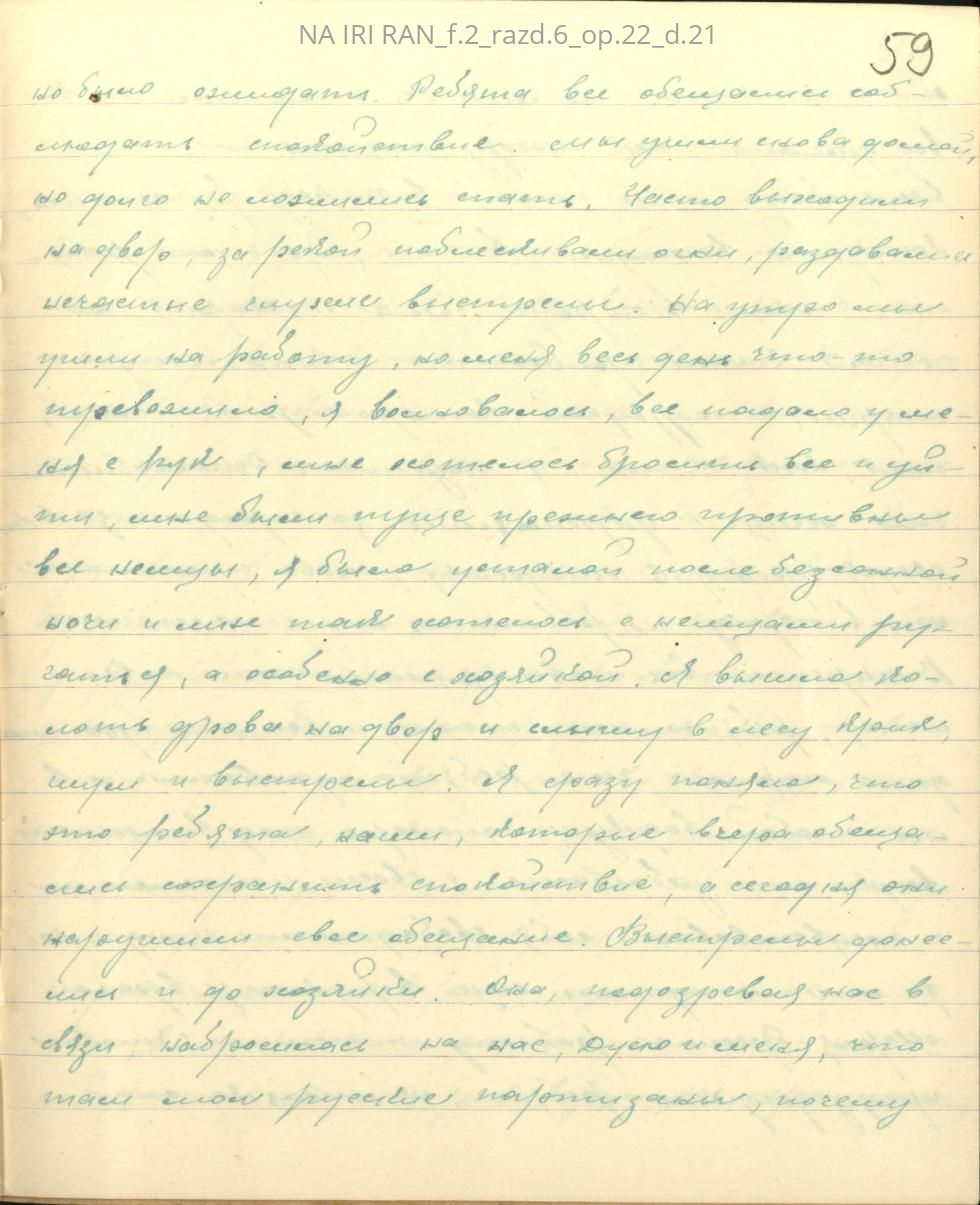 NA IRI RAN_f.2_razd.6_op.22_d.21
59
но было ожидать. Ребята все обещались соб-
людать спокойствие. Мы ушли снова домой,
но долго не ложились спать. Часто выходили
на двор, за рекой поблескивали огни, раздавались
нечастые глухие выстрелы. На утро мы
ушли на работу, но меня весь день что-то
тревожило, я волновалась, все падало у ме-
ня с рук, мне хотелось бросить все и уй-
ти, мне были пуще прежнего противны
все немцы, я была усталой после безсонной
ночи и мне так хотелось с немцами ру-
гаться, а особенно с хозяйкой. Я вышла ко-
лоть дрова на двор и слышу в лесу крик,
шум и выстрелы. Я сразу поняла, что
это ребята, наши, которые вчера обеща-
лись сохранить спокойствие, а сегодня они
нарушили свое обещание. Выстрелы донес-
лись и до хозяйки. Она, подозревая нас в
связи, набросилась на нас, Дусю и меня, что
там мол русские партизаны, почему